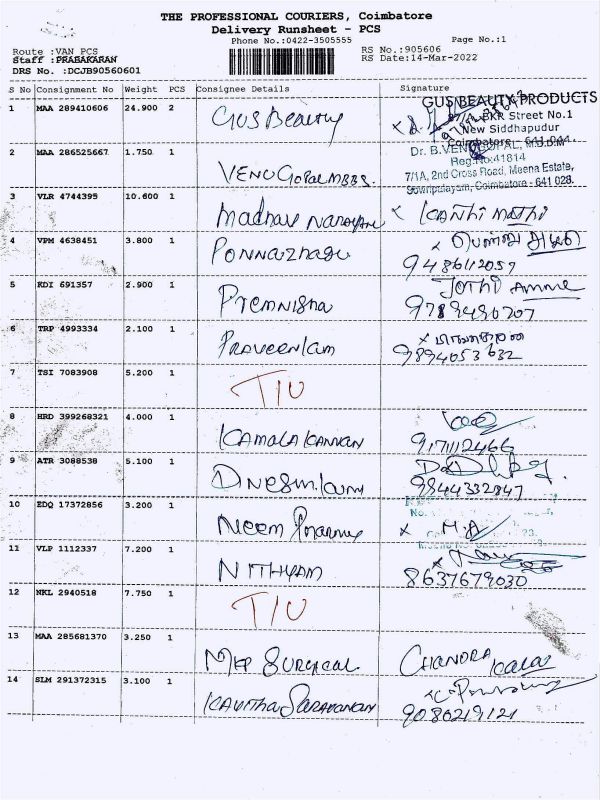 THE PROFESSIONAL COURIERS, Coimbatore
Delivery Runsheet - PCS
Phone No.:0422-3505555 Page No.:1
Route :VAN PCS RS No.:905606
Staff :PRABAKARAN RS Date:14-Mar-2022
DRS No. :DCJB90560601
S No Consignment No Weight PCS Consignee Details Signature
1 MAA 289410606 24.900 2 GUS Beauty
GUS BEAUTY PRODUCTS
BKR Street No.1
New Siddhapudur
Coimbatore - 641 044.
2 MAA 286525667 1.750 1 VENUGOPAL MBBS.
Reg.No:41814
7/1A, 2nd Cross Road, Meena Estate,
Sowripalayam, Coimbatore - 641 028.
3 VLR 4744395 10.600 1 Madhav Narayan x KANHI MATHI
4 VPM 4638451 3.800 1 Ponnazhagu
9486112057
5 KDI 691357 2.900 1 Premnisha JOTHI Amme
9789490707
6 TRP 4993334 2.100 1 Praveenkum
9894053632
7 TSI 7083908 5.200 1 T/U
8 HRD 399268321 4.000 1 KAMALA KANNAN
9171112466
9 ATR 3088538 5.100 1
9844332847
10 EDQ 17372856 3.200 1 Neem x M.A
11 VLP 1112337 7.200 1 NITHYAM
8637679030
12 NKL 2940518 7.750 1 T/U
13 MAA 285681370 3.250 1 MKP SURGICAL CHANDRA kala
14 SLM 291372315 3.100 1 KAVITHA SARAVANAN
9080219121